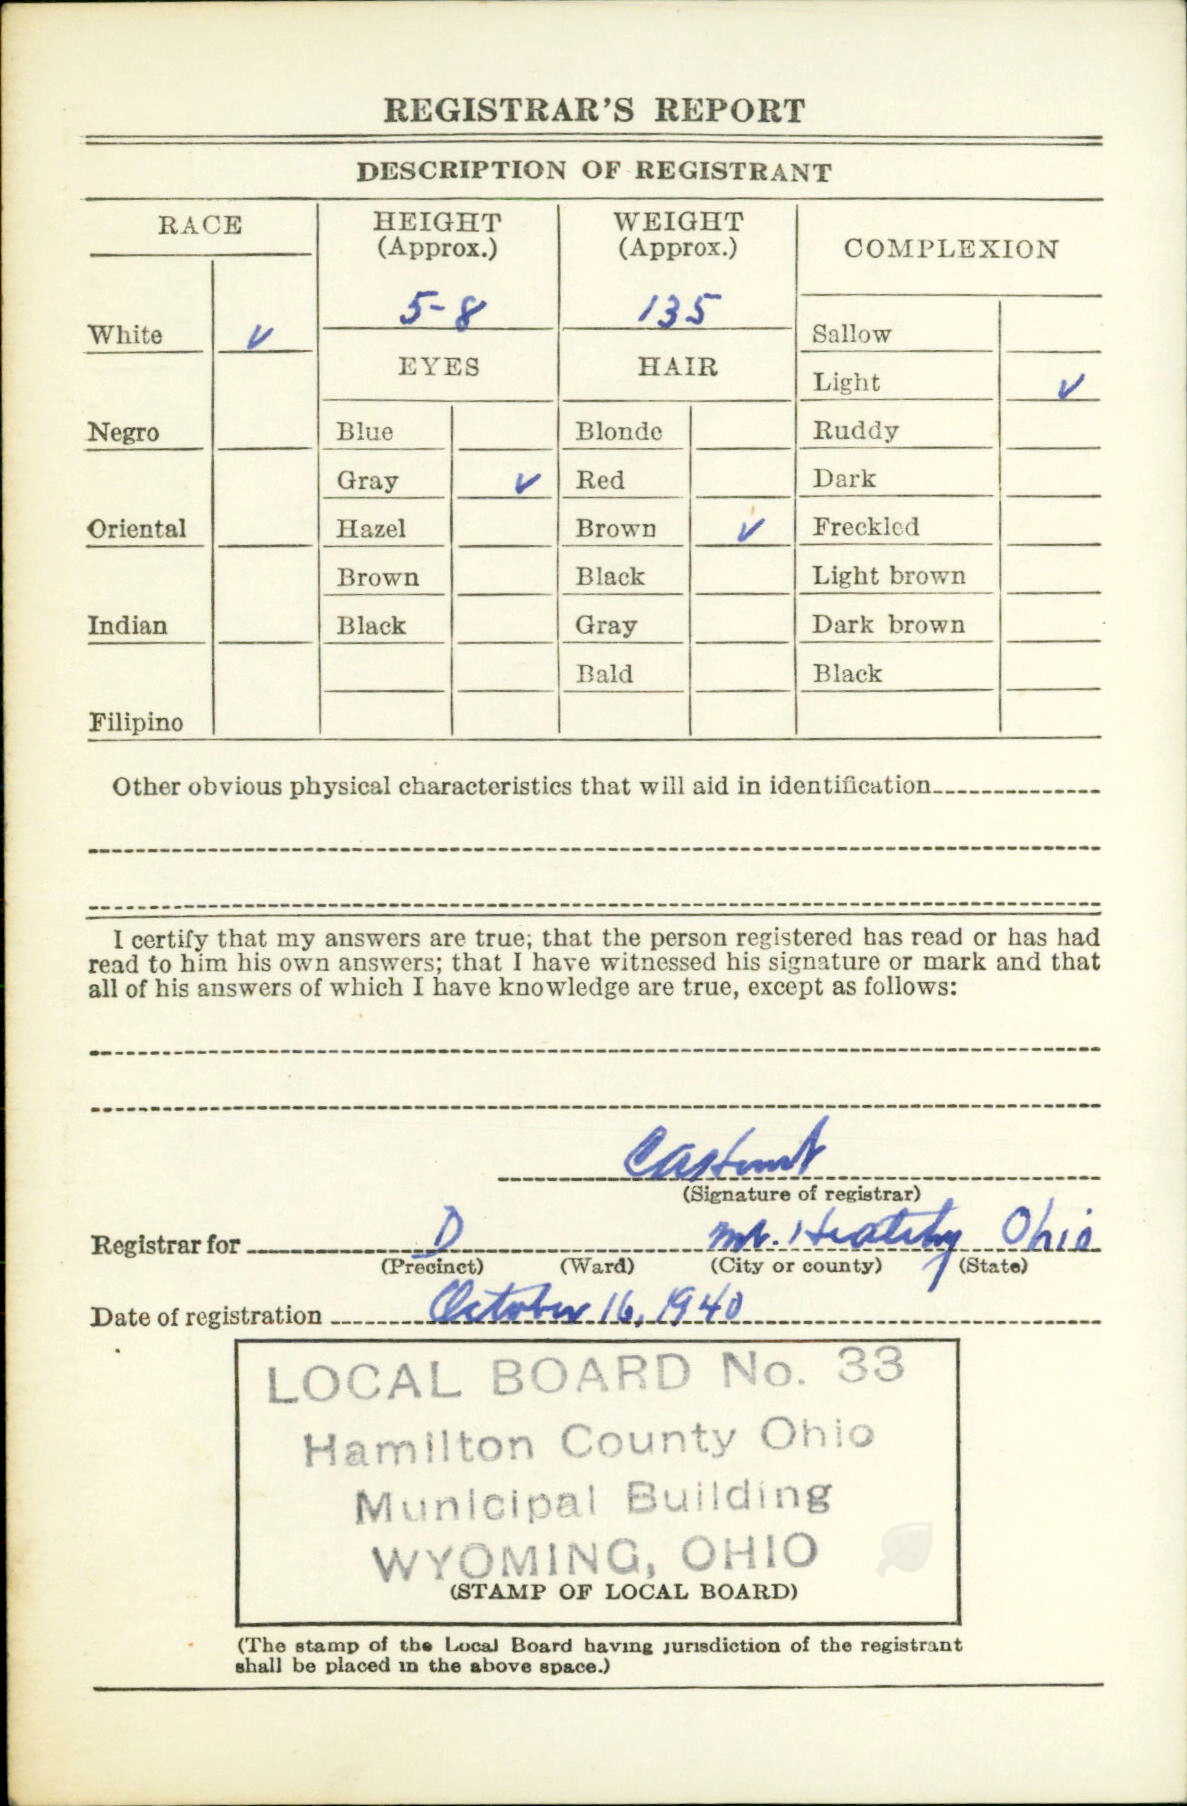 REGISTRAR'S REPORT
DESCRIPTION OF REGISTRANT
RACE
White ✓
Negro
Oriental
Indian
Filipino
HEIGHT
(Approx.)
5-8
WEIGHT
(Approx.)
135
EYES
Blue
Gray ✓
Hazel
Brown
Black
HAIR
Blonde
Red
Brown ✓
Black
Gray
Bald
COMPLEXION
Sallow
Light ✓
Ruddy
Dark
Freckled
Light brown
Dark brown
Black
Other obvious physical characteristics that will aid in identification
I certify that my answers are true; that the person registered has read or has had
read to him his own answers; that I have witnessed his signature or mark and that
all of his answers of which I have knowledge are true, except as follows:
(Signature of registrar)
Registrar for D Mt. Ohio
(Precinct) (Ward) (City or county) (State)
Date of registration October 16, 1940
LOCAL BOARD No. 33
Hamilton County Ohio
Municipal Building
WYOMING, OHIO
(STAMP OF LOCAL BOARD)
(The stamp of the Local Board having jurisdiction of the registrant
shall be placed in the above space.)